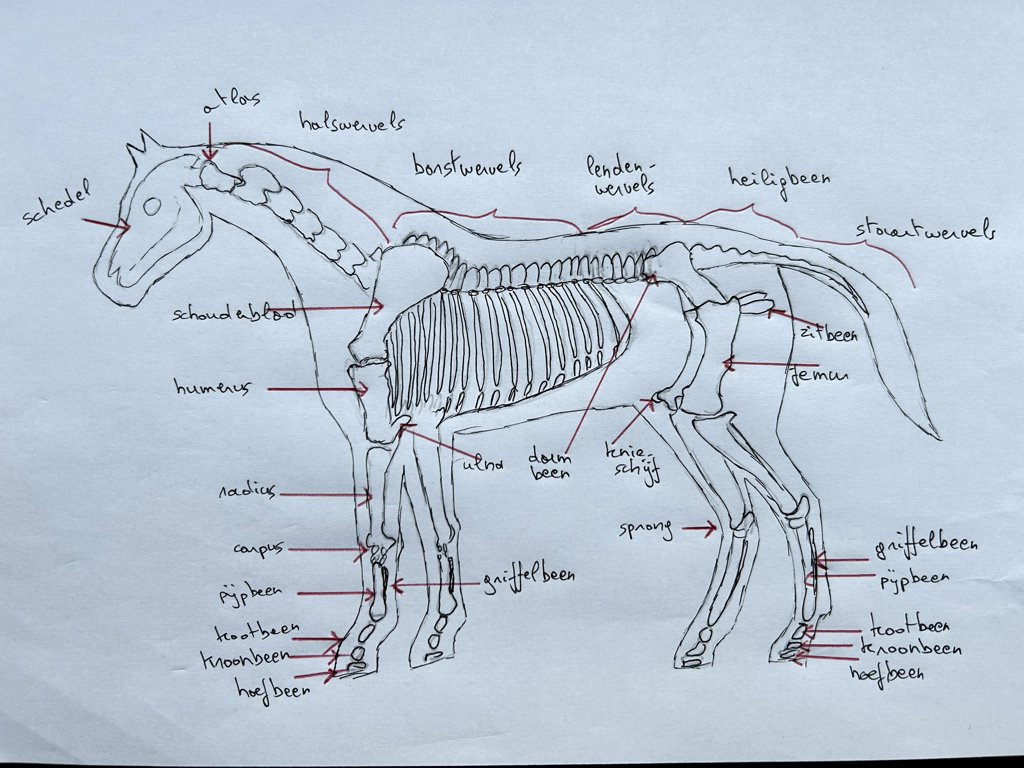 atlas
halswervels
borstwervels
lenden-
wervels
heiligbeen
staartwervels
schedel
schouderblad
zitbeen
femur
humerus
ulna
darm
been
knie-
schijf
radius
sprong
carpus
griffelbeen
pijpbeen
griffelbeen
pijpbeen
kootbeen
kroonbeen
hoefbeen
kootbeen
kroonbeen
hoefbeen